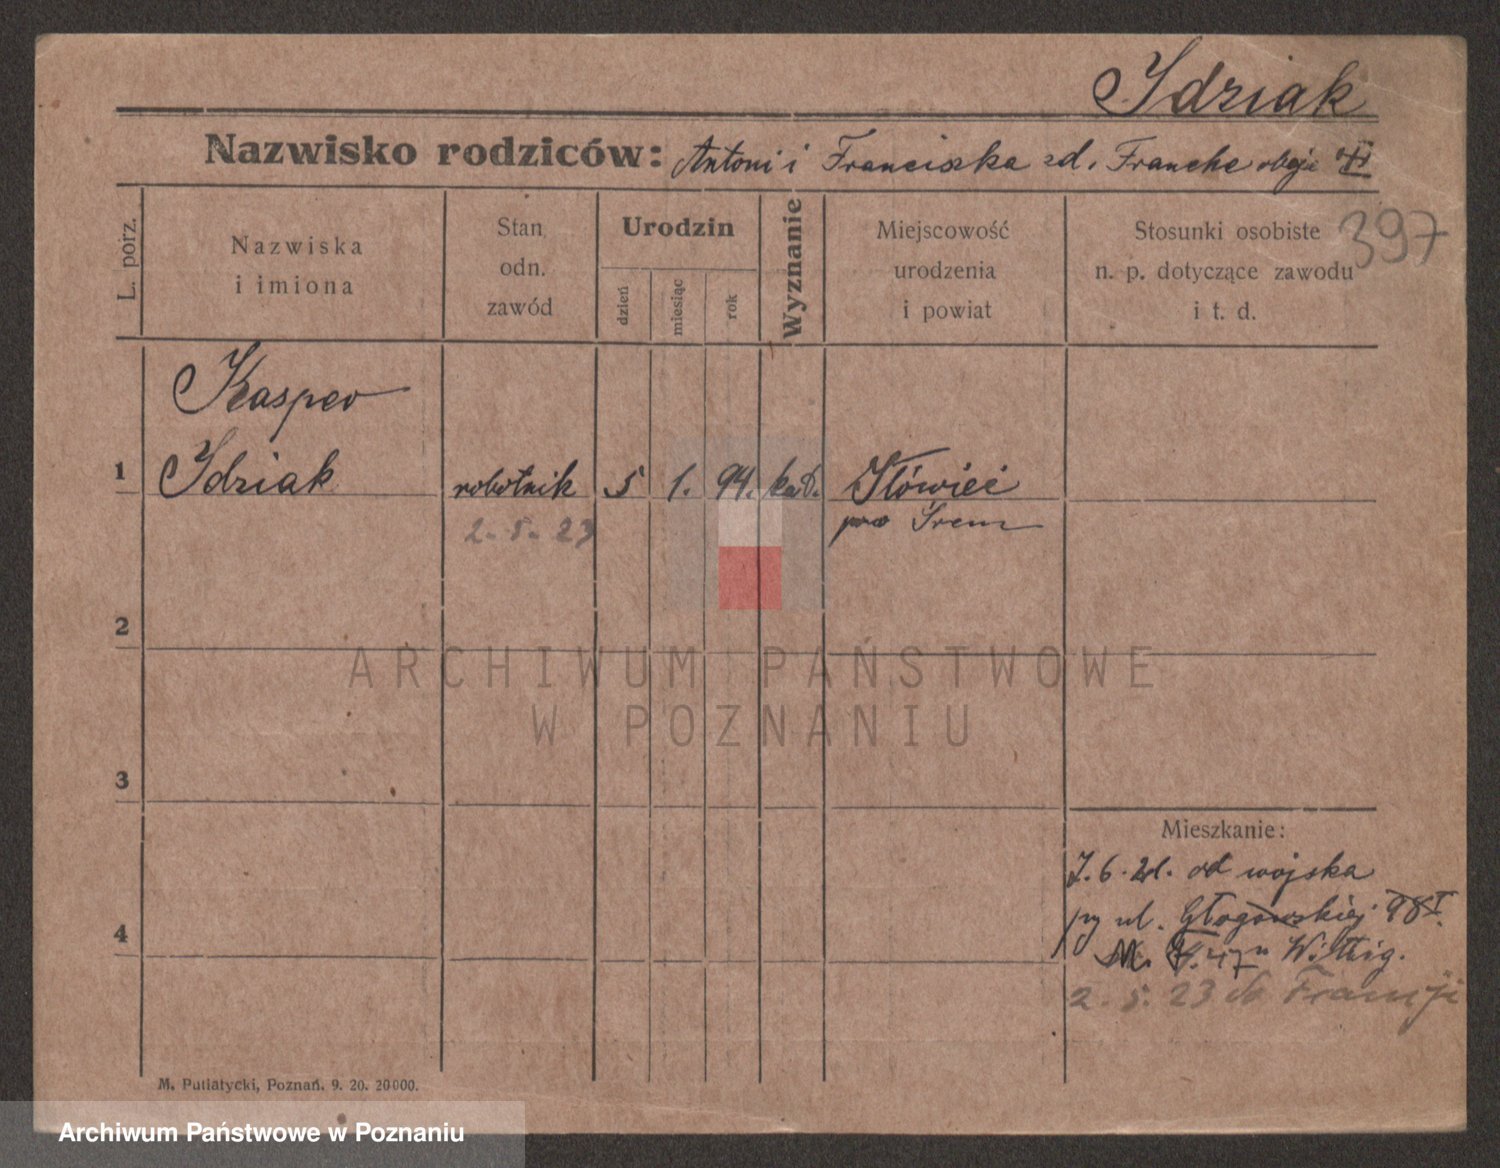 Idziak
Nazwisko rodziców: Antoni i Franciszka zd. Franche oboje
397
L. porz.
Nazwiska
i imiona
Stan
odn.
zawód
Urodzin
dzień
miesiąc
rok
Wyznanie
Miejscowość
urodzenia
i powiat
Stosunki osobiste
n. p. dotyczące zawodu
i t. d.
Kasper
1 Idziak robotnik 5 1. 94. kat. Iłówiec
2. 5. 23 Śrem
2
ARCHIWUM PAŃSTWOWE
W POZNANIU
3
Mieszkanie:
7. 6. 21. od wojska
4 ul. Głogowskiej 98 I.
47 u Wittig.
2. 5. 23 do Francji
M. Putiatycki, Poznań. 9. 20. 20000.
Archiwum Państwowe w Poznaniu